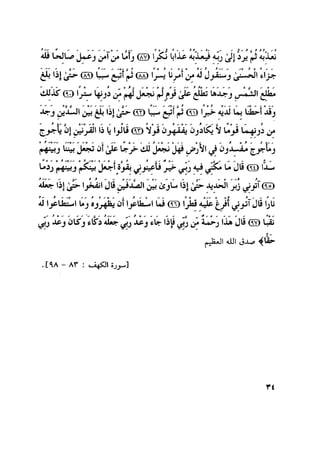 نُعَذِّبُهُ ثُمَّ يُرَدُّ إِلَىٰ رَبِّهِ فَيُعَذِّبُهُ عَذَابًا نُّكْرًا ﴿٨٧﴾ وَأَمَّا مَنْ آمَنَ وَعَمِلَ صَالِحًا فَلَهُ
جَزَاءً الْحُسْنَىٰ وَسَنَقُولُ لَهُ مِنْ أَمْرِنَا يُسْرًا ﴿٨٨﴾ ثُمَّ أَتْبَعَ سَبَبًا ﴿٨٩﴾ حَتَّىٰ إِذَا بَلَغَ
مَطْلِعَ الشَّمْسِ وَجَدَهَا تَطْلُعُ عَلَىٰ قَوْمٍ لَّمْ نَجْعَل لَّهُم مِّن دُونِهَا سِتْرًا ﴿٩٠﴾ كَذَٰلِكَ
وَقَدْ أَحَطْنَا بِمَا لَدَيْهِ خُبْرًا ﴿٩١﴾ ثُمَّ أَتْبَعَ سَبَبًا ﴿٩٢﴾ حَتَّىٰ إِذَا بَلَغَ بَيْنَ السَّدَّيْنِ وَجَدَ
مِن دُونِهِمَا قَوْمًا لَّا يَكَادُونَ يَفْقَهُونَ قَوْلًا ﴿٩٣﴾ قَالُوا يَا ذَا الْقَرْنَيْنِ إِنَّ يَأْجُوجَ
وَمَأْجُوجَ مُفْسِدُونَ فِي الْأَرْضِ فَهَلْ نَجْعَلُ لَكَ خَرْجًا عَلَىٰ أَن تَجْعَلَ بَيْنَنَا وَبَيْنَهُمْ
سَدًّا ﴿٩٤﴾ قَالَ مَا مَكَّنِّي فِيهِ رَبِّي خَيْرٌ فَأَعِينُونِي بِقُوَّةٍ أَجْعَلْ بَيْنَكُمْ وَبَيْنَهُمْ رَدْمًا
﴿٩٥﴾ آتُونِي زُبَرَ الْحَدِيدِ حَتَّىٰ إِذَا سَاوَىٰ بَيْنَ الصَّدَفَيْنِ قَالَ انفُخُوا حَتَّىٰ إِذَا جَعَلَهُ
نَارًا قَالَ آتُونِي أُفْرِغْ عَلَيْهِ قِطْرًا ﴿٩٦﴾ فَمَا اسْطَاعُوا أَن يَظْهَرُوهُ وَمَا اسْتَطَاعُوا لَهُ
نَقْبًا ﴿٩٧﴾ قَالَ هَٰذَا رَحْمَةٌ مِّن رَّبِّي فَإِذَا جَاءَ وَعْدُ رَبِّي جَعَلَهُ دَكَّاءَ وَكَانَ وَعْدُ رَبِّي
حَقًّا﴾ صدق الله العظيم
[سورة الكهف : ٨٣ - ٩٨].
٣٤